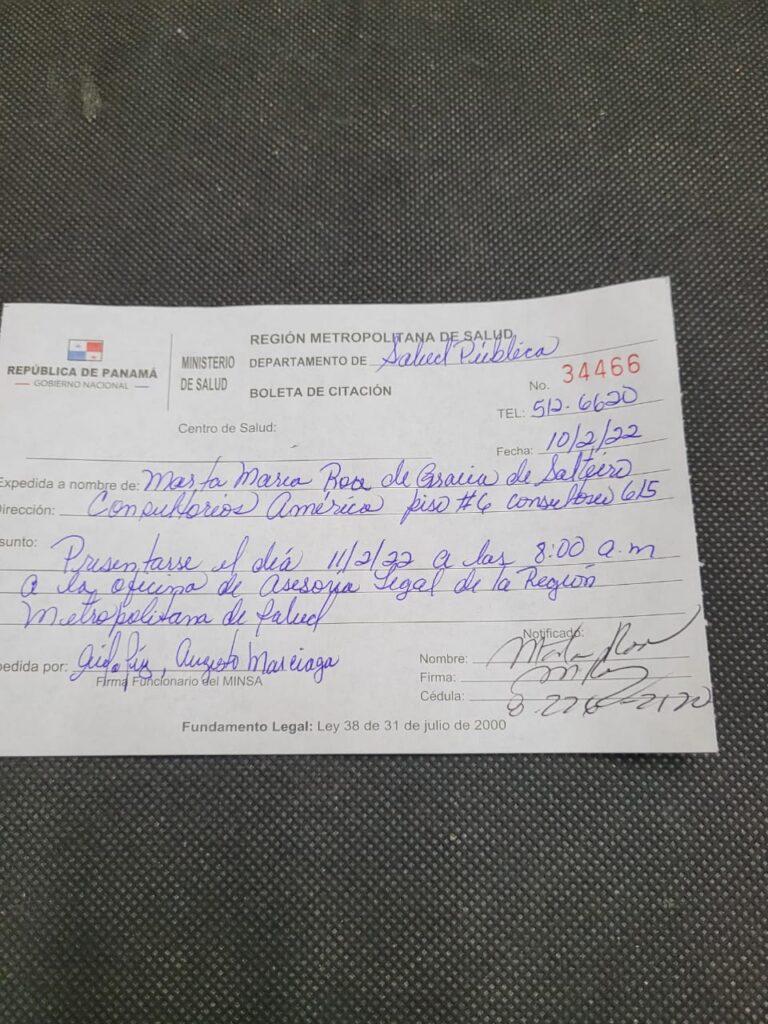 REGIÓN METROPOLITANA DE SALUD
REPÚBLICA DE PANAMÁ
— GOBIERNO NACIONAL —
MINISTERIO DE SALUD
DEPARTAMENTO DE Salud Pública
BOLETA DE CITACIÓN
No. 34466
TEL: 512-6620
Centro de Salud:
Fecha: 10/2/22
Expedida a nombre de: Marta Maria Roa de Gracia de
Dirección: Consultorios América piso #6 615
sunto: Presentarse el día 11/2/22 a las 8:00 a.m
a la oficina de Asesoria Legal de la Región
Metropolitana de Salud
Notificado:
pedida por: Augusto Marciaga
Firma Funcionario del MINSA
Nombre: Marta
Firma:
Cédula:
Fundamento Legal: Ley 38 de 31 de julio de 2000